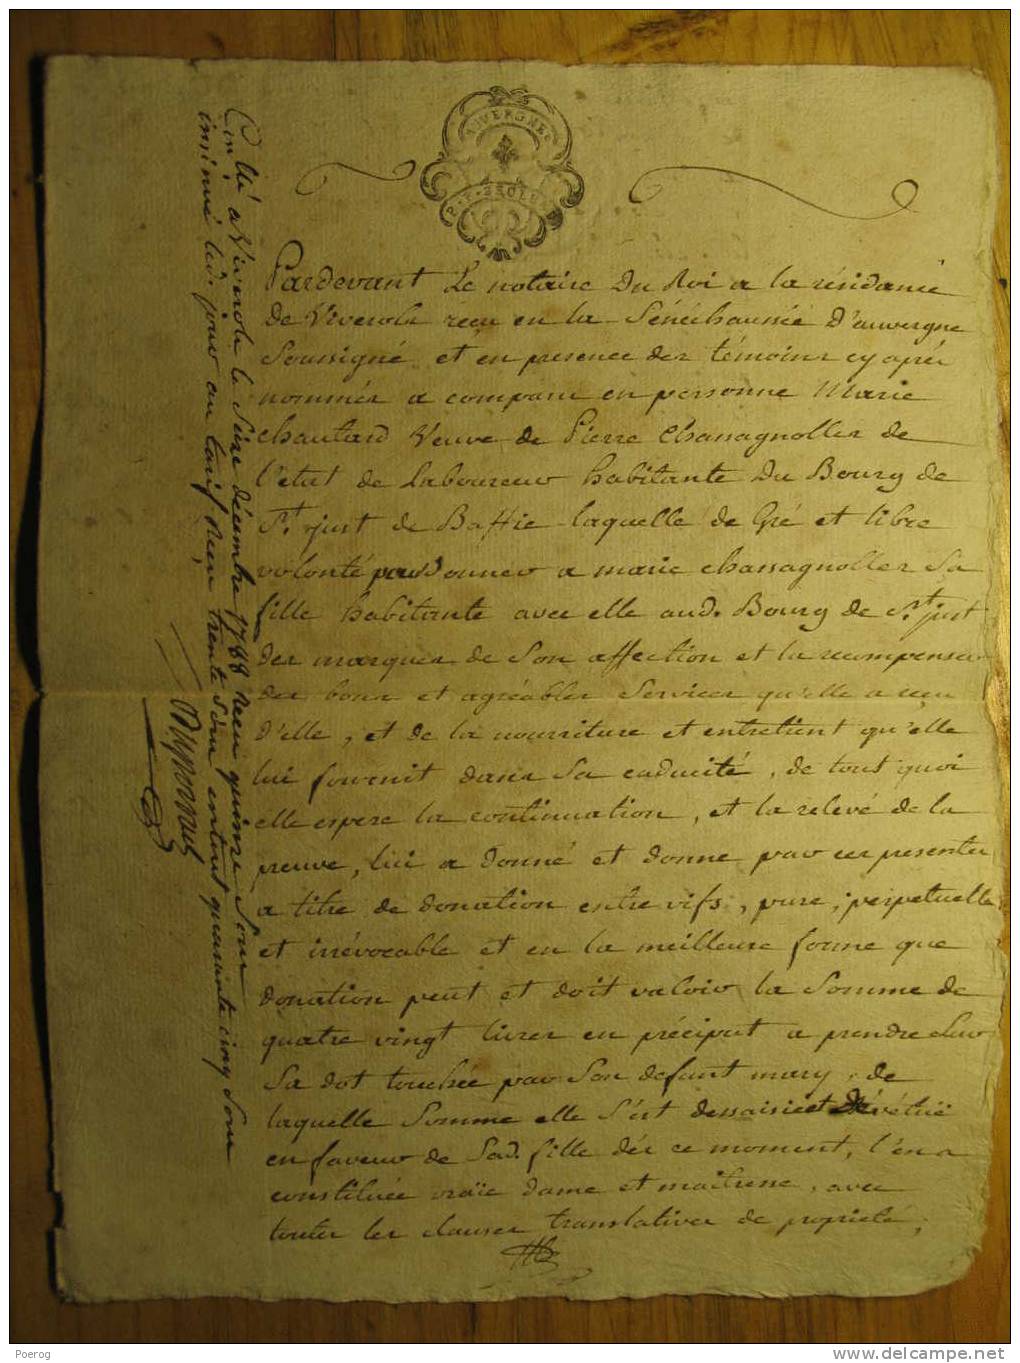 AUVERGNE
Pardevant Le notaire Du Roi a la résidance
de Viverols reçu en la Sénéchaussée d'auvergne
Soussigné et en presence des témoins cy après
nommés a comparu en personne Marie
chautard Veuve de Pierre Chassagnolles de
l'état de Laboureur habitante Du Bourg de
St. just de Baffie laquelle de Gré et libre
volonté pour Donner a marie chassagnolles Sa
fille habitante avec elle aud. Bourg de St. just
des marques de Son affection et la recompenser
des bons et agréables Services qu'elle a reçu
d'elle, et de la nourriture et entretient qu'elle
lui fournit dans Sa caducité, de tout quoi
elle espere la continuation, et la relevé de la
preuve, lui a donné et donne par ces presentes
a titre de donation entre vifs, pure, perpetuelle
et irrévocable et en la meilleure forme que
donation peut et doit valoir la Somme de
quatre vingt livres en préciput a prendre Sur
Sa dot touchée par Son defunt mary, de
laquelle Somme elle S'est dessaisie et dévétüe
en faveur de Sad. fille dès ce moment, l'en a
constituée vraïe dame et maitresse, avec
toutes les clauses translatives de propriété,
Con.lé a Viverols le Seize décembre 1788 reçu quinze Sous
insinué led. jour au tarif reçu trente Sous en tout quarante cinq Sous
Poerog
www.delcampe.net